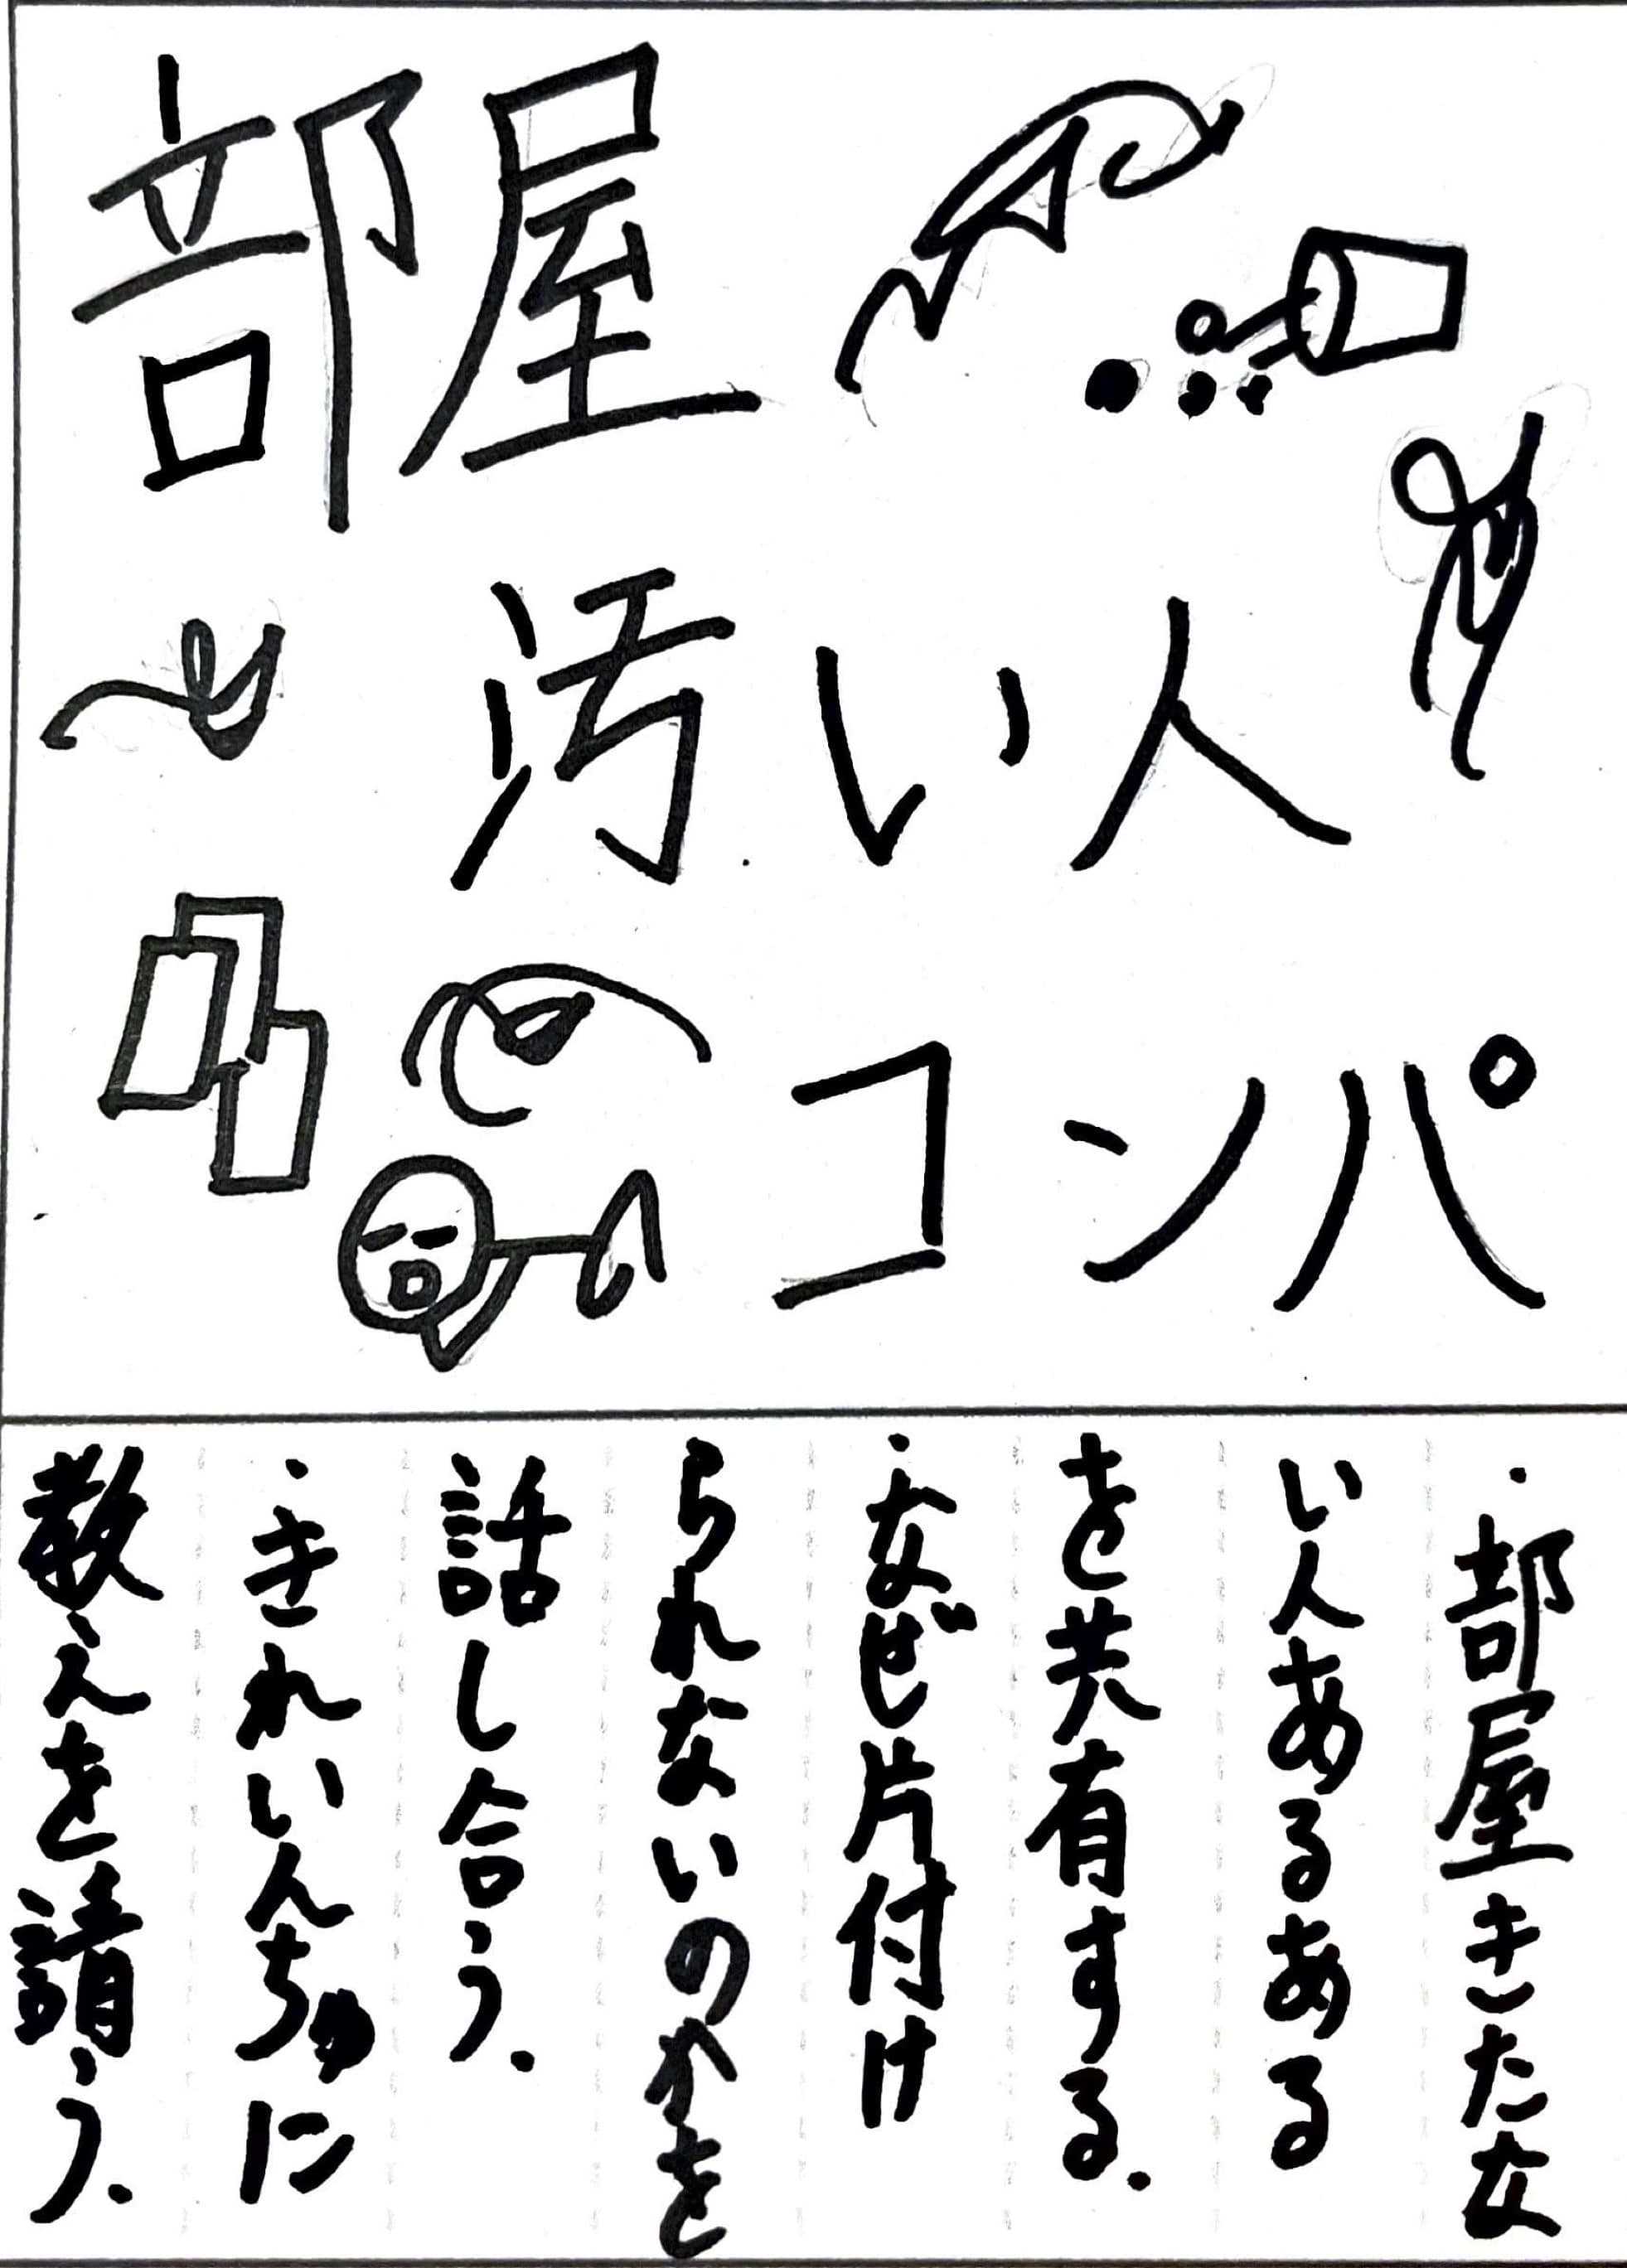 部屋
汚い人
コンパ
・部屋きたな
い人あるある
を共有する.
・なぜ片付け
られないのかを
話し合う.
・きれいんちゅに
教えを請う.